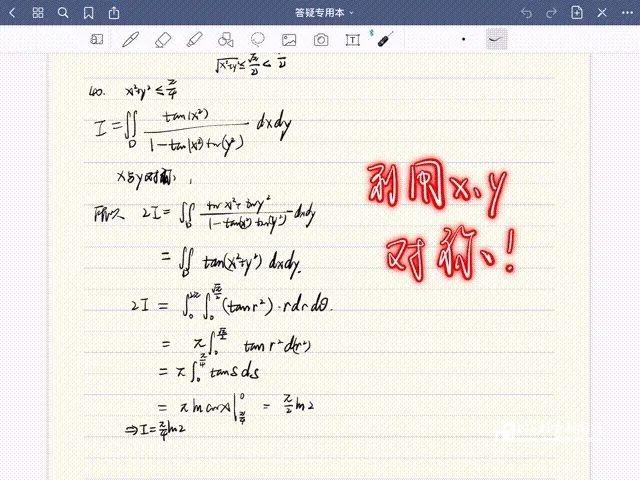 答疑专用本
√x²+y² ≤ √π/2 < π/2
40. x²+y² ≤ π/4
I = ∬_D tan(x²) / (1-tan(x²)tan(y²)) dxdy
x与y对称,
所以 2I = ∬_D (tanx²+tany²) / (1-tan(x²)tan(y²)) dxdy
= ∬_D tan(x²+y²) dxdy.
2I = ∫₀^{2π} ∫₀^{√π/2} (tan r²)·r dr dθ.
= π ∫₀^{√π/2} tan r² d(r²)
= π ∫₀^{π/4} tan s ds
= π ln cos x |_{π/4}^0 = π/2 ln2
⇒ I = π/4 ln2
利用x、y
对称、!